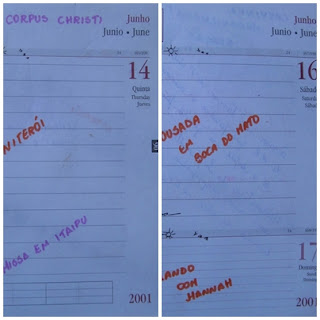 CORPUS CHRISTI
Junho
Junio • June
14
Quinta
Thursday
Jueves
NITERÓI
MISSA EM ITAIPU
2001
Junho
Junio • June
16
Sábado
Saturday
Sábado
OUSADA
EM
BOCA DO MATO
17
Domingo
Sunday
Domingo
ANDO
COM
HANNAH
2001